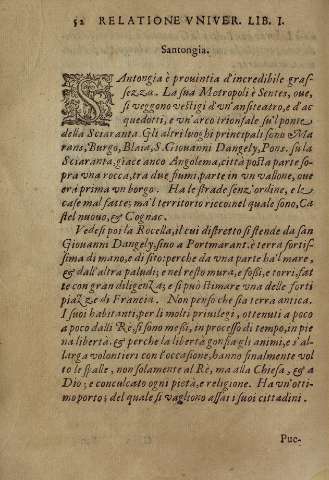 52 RELATIONE VNIVER. LIB. I.
Santongia.
SANTONGIA è prouintia d'incredibile graſ-
ſezza. La ſua Metropoli è Sentes, oue,
ſi veggono veſtigi d'vn'anfiteatro, e d'ac
quedotti, e vn'arco trionfale ſu'l ponte
della Sciaranta. Gli altri luoghi principali ſono Ma
rans, Burgo, Blaia, S. Giouanni Dangely, Pons. ſu la
Sciaranta, giace anco Angolema, città poſta parte ſo-
pra vna rocca, tra due fiumi, parte in vn vallone, oue
era prima vn borgo. Ha le ſtrade ſenz'ordine, e le
caſe mal fatte; mà'l territorio ricco: nel quale ſono, Ca
ſtel nuouo, & Cognac.
Vedeſi poi la Roccella, il cui diſtretto ſi ſtende da ſan
Giouanni Dangely, ſino a Portmarant. è terra fortiſ-
ſima di mano, e di ſito: perche da vna parte ha'l mare,
& dall'altra paludi; e nel reſto mura, e foſſi, e torri, fat
te con gran diligenza; e ſi può ſtimare vna delle forti
piazze di Francia. Non penſo che ſia terra antica.
I ſuoi habitanti, per li molti priuilegi, ottenuti a poco
a poco dalli Rè, ſi ſono meſſi, in proceſſo di tempo, in pie
na libertà. & perche la libertà gonfia gli animi, e s'al-
larga volontieri con l'occaſione, hanno finalmente vol
to le ſpalle, non ſolamente al Rè, ma alla Chieſa, & a
Dio; e conculcato ogni pietà, e religione. Ha vn'otti-
mo porto; del quale ſi vagliono aſſai i ſuoi cittadini.
Pue-